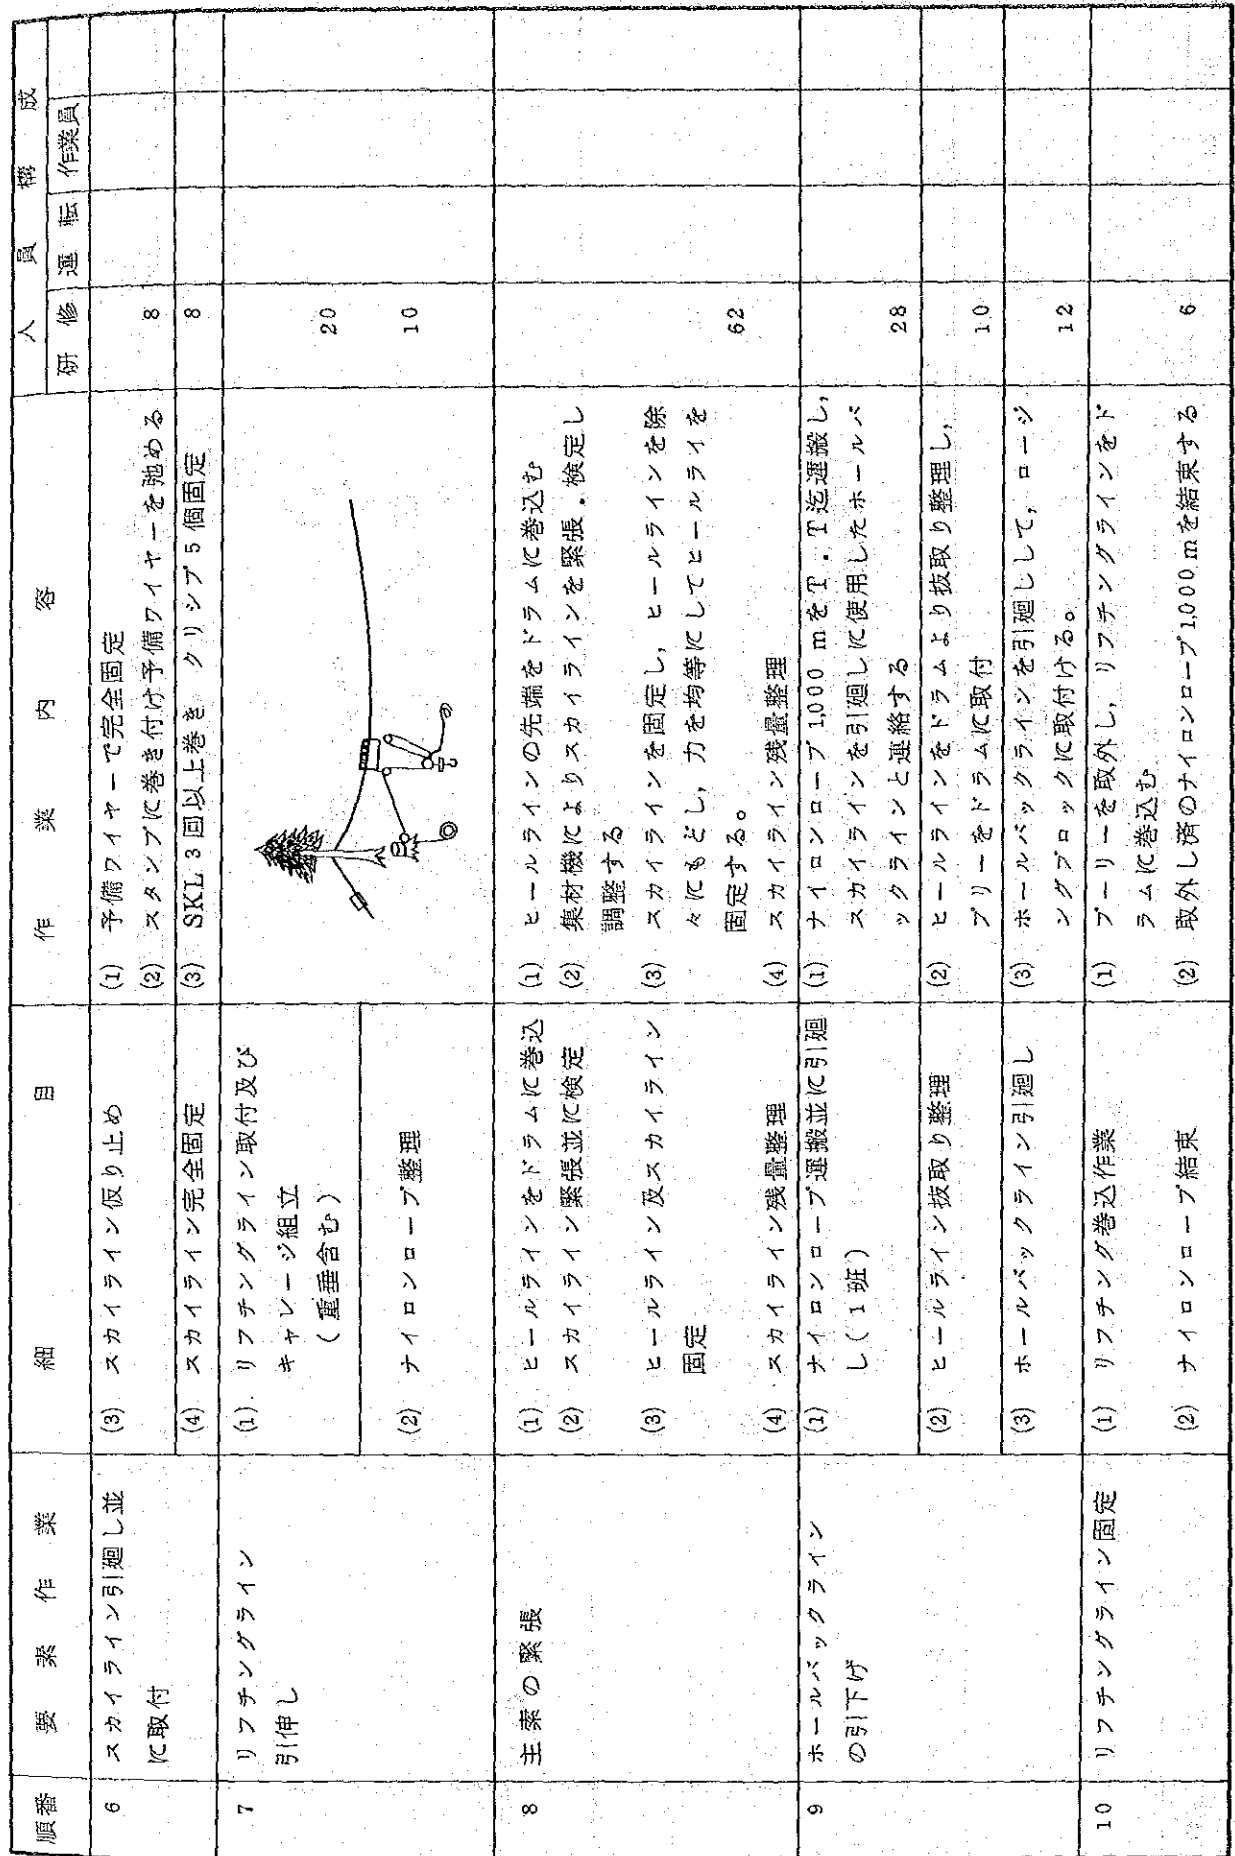 順番
要素作業
細目
作業内容
人員構成
研修
運転
作業員
6
スカイライン引廻し並
に取付
(3) スカイライン仮り止め
(1) 予備ワイヤーで完全固定
(2) スタンプに巻き付け予備ワイヤーを弛める
8
(4) スカイライン完全固定
(3) SKL 3回以上巻き クリップ5個固定
8
7
リフチングライン
引伸し
(1) リフチングライン取付及び
キャレージ組立
(重垂含む)
20
(2) ナイロンロープ整理
10
8
主索の緊張
(1) ヒールラインをドラムに巻込
(1) ヒールラインの先端をドラムに巻込む
(2) スカイライン緊張並に検定
(2) 集材機によりスカイラインを緊張.検定し
調整する
(3) ヒールライン及スカイライン
固定
(3) スカイラインを固定し,ヒールラインを除
々にもどし,力を均等にしてヒールライを
固定する。
62
(4) スカイライン残量整理
(4) スカイライン残量整理
9
ホールバックライン
の引下げ
(1) ナイロンロープ運搬並に引廻
し(1班)
(1) ナイロンロープ1,000mをT.T迄運搬し,
スカイラインを引廻しに使用したホールバ
ックラインと連絡する
28
(2) ヒールライン抜取り整理
(2) ヒールラインをドラムより抜取り整理し,
プリーをドラムに取付
10
(3) ホールバックライン引廻し
(3) ホールバックラインを引廻しして,ロージ
ングブロックに取付ける。
12
10
リフチングライン固定
(1) リフチング巻込作業
(1) プーリーを取外し,リフチングラインをド
ラムに巻込む
(2) ナイロンロープ結束
(2) 取外し済のナイロンロープ1,000mを結束する
6